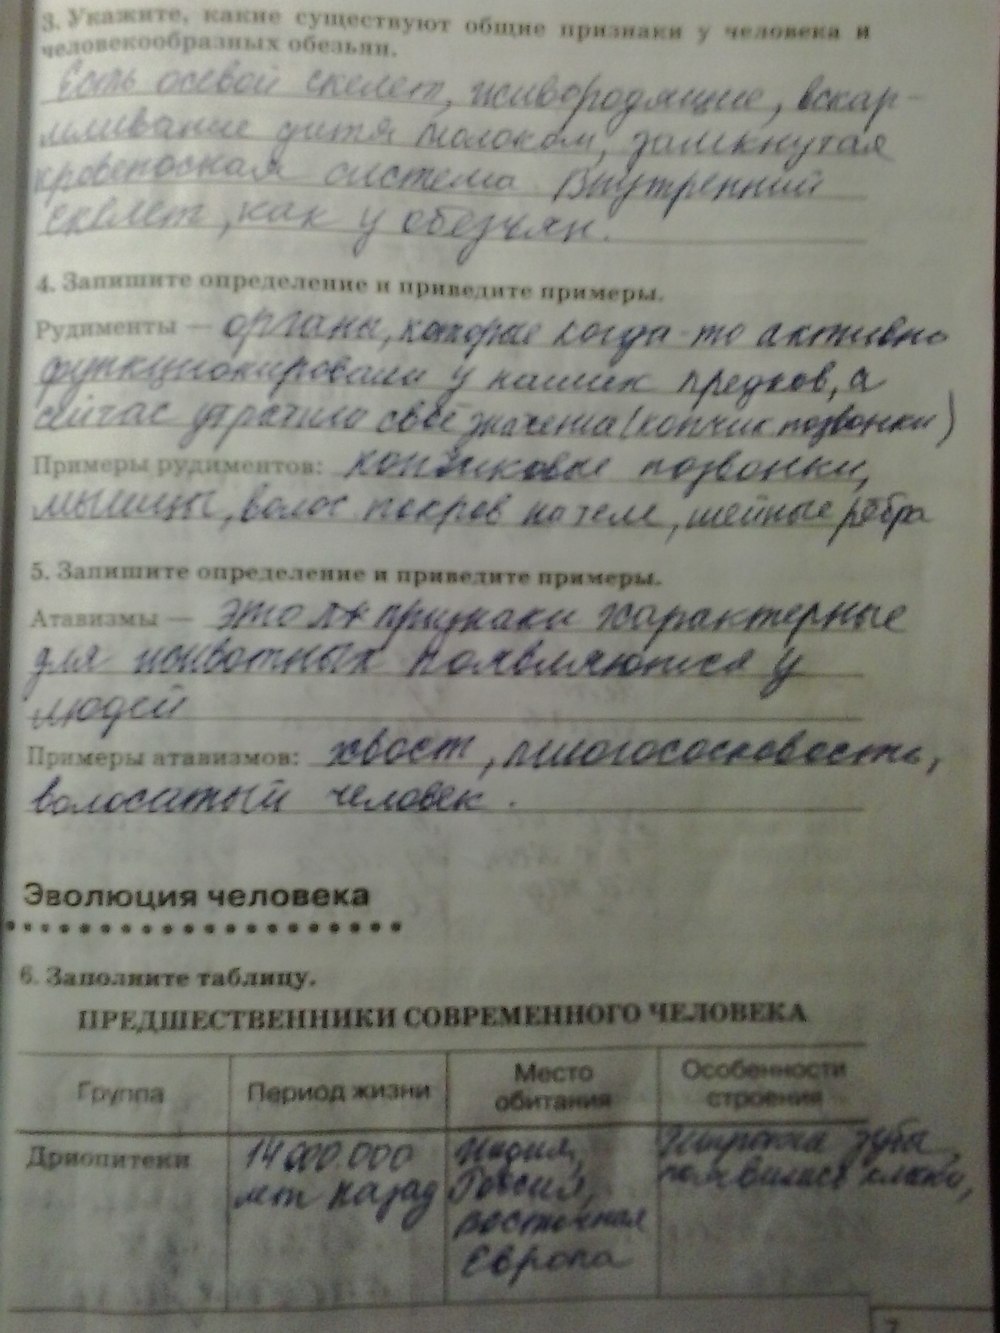 3. Укажите, какие существуют общие признаки у человека и
человекообразных обезьян.
Есть осевой скелет, живородящие, вскар-
мливание дитя молоком, замкнутая
кровеносная система. Внутренний
скелет, как у обезьян.
4. Запишите определение и приведите примеры.
Рудименты — органы, которые когда-то активно
функционировали у наших предков, а
сейчас утратили своё значения (кончик позвонки)
Примеры рудиментов: копчиковые позвонки,
мышцы, волос покров на теле, шейные рёбра
5. Запишите определение и приведите примеры.
Атавизмы — это признаки характерные
для животных появляются у
людей
Примеры атавизмов: хвост, многососковость,
волосатый человек.
Эволюция человека
6. Заполните таблицу.
ПРЕДШЕСТВЕННИКИ СОВРЕМЕННОГО ЧЕЛОВЕКА
Группа Период жизни Место обитания Особенности строения
Дриопитеки 14 000.000 Индия, зубы,
лет назад появились клыки,
восточная
Европа
7